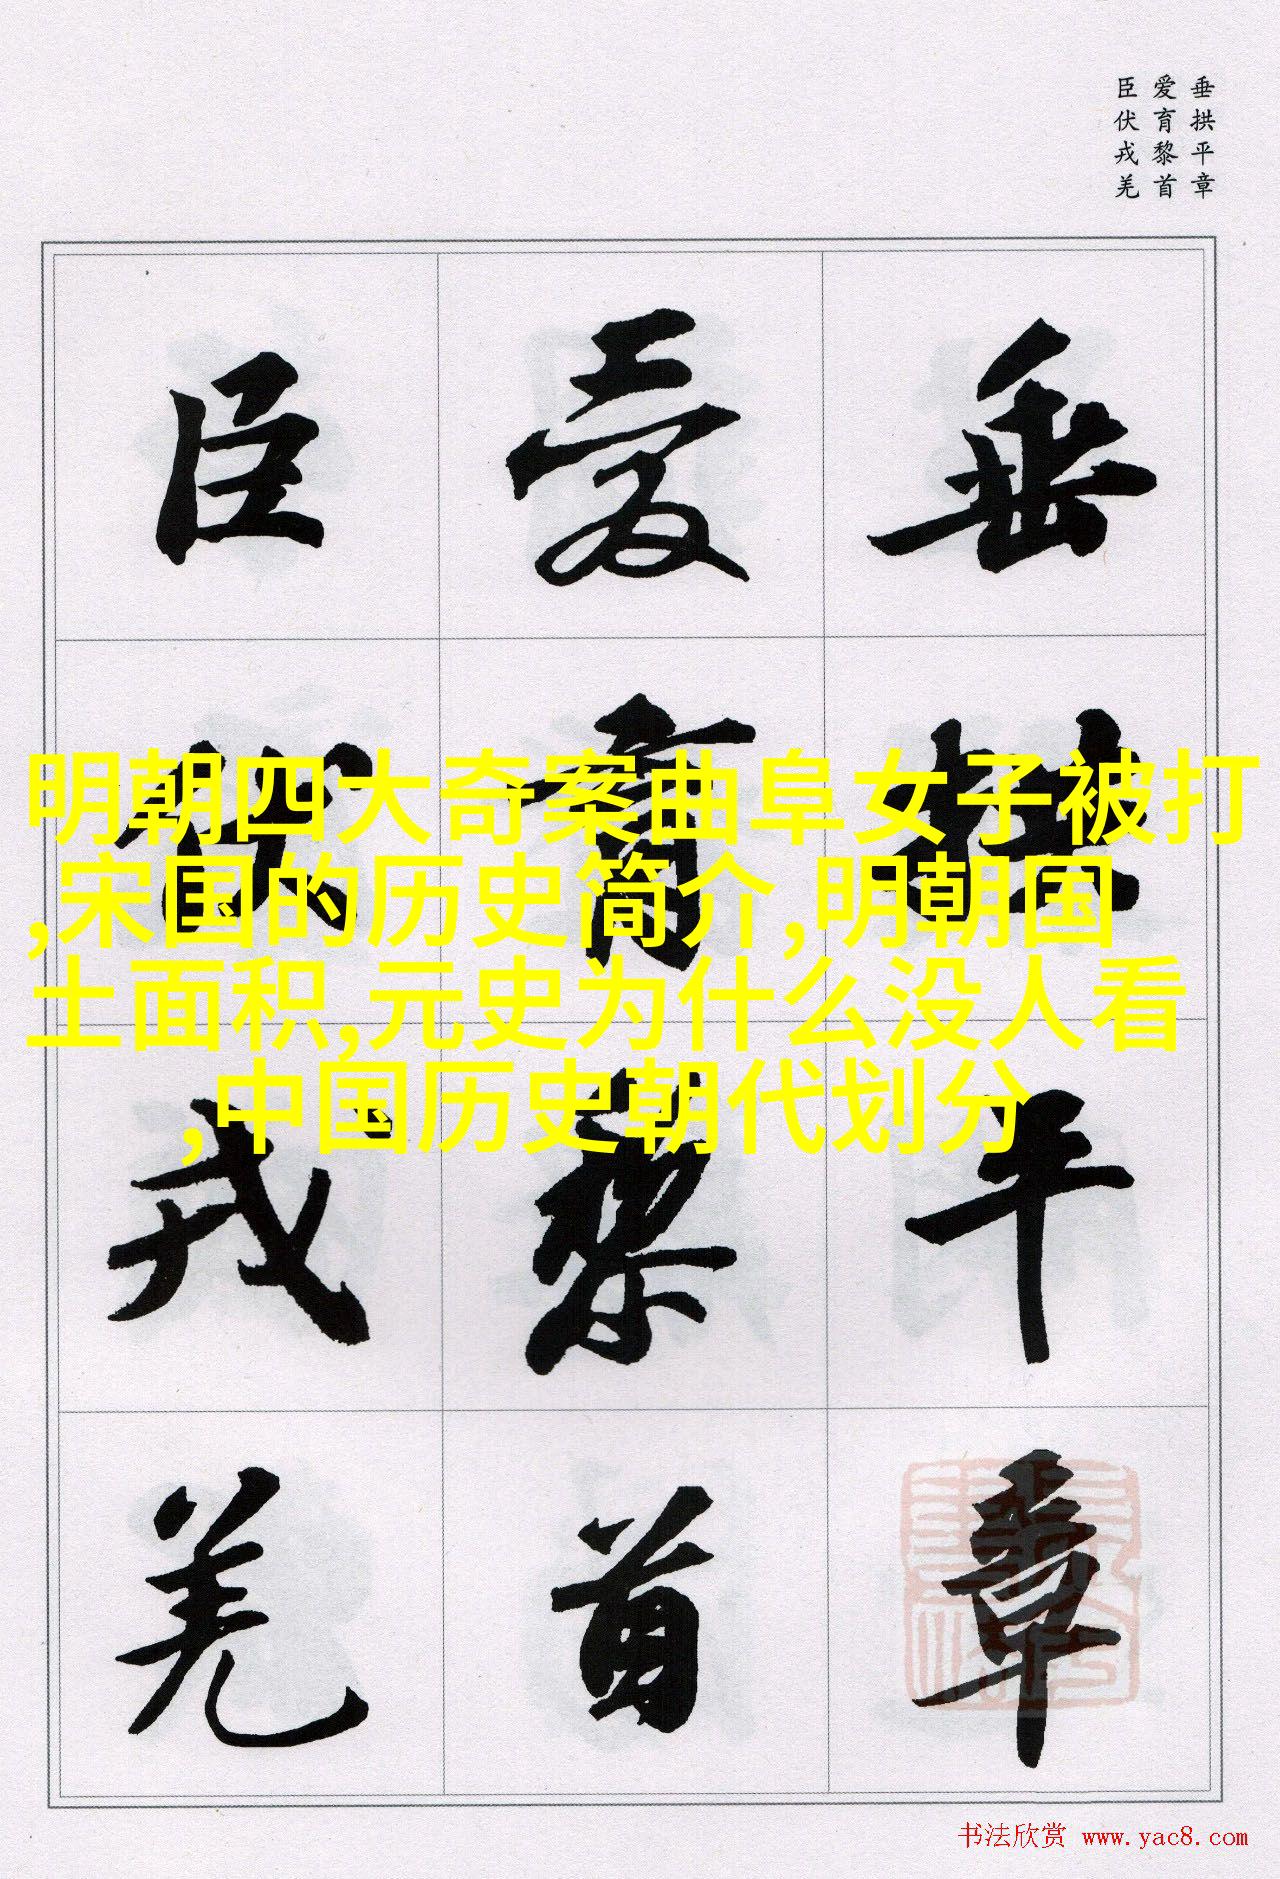 垂拱平章
爱育黎首
臣伏戎羌
垂拱平章
爱育黎首
臣伏戎羌
明朝四大奇案曲阜女子被打
,宋国的历史简介,明朝国
土面积,元史为什么没人看
,中国历史朝代划分
书法欣赏 www.yac8.com